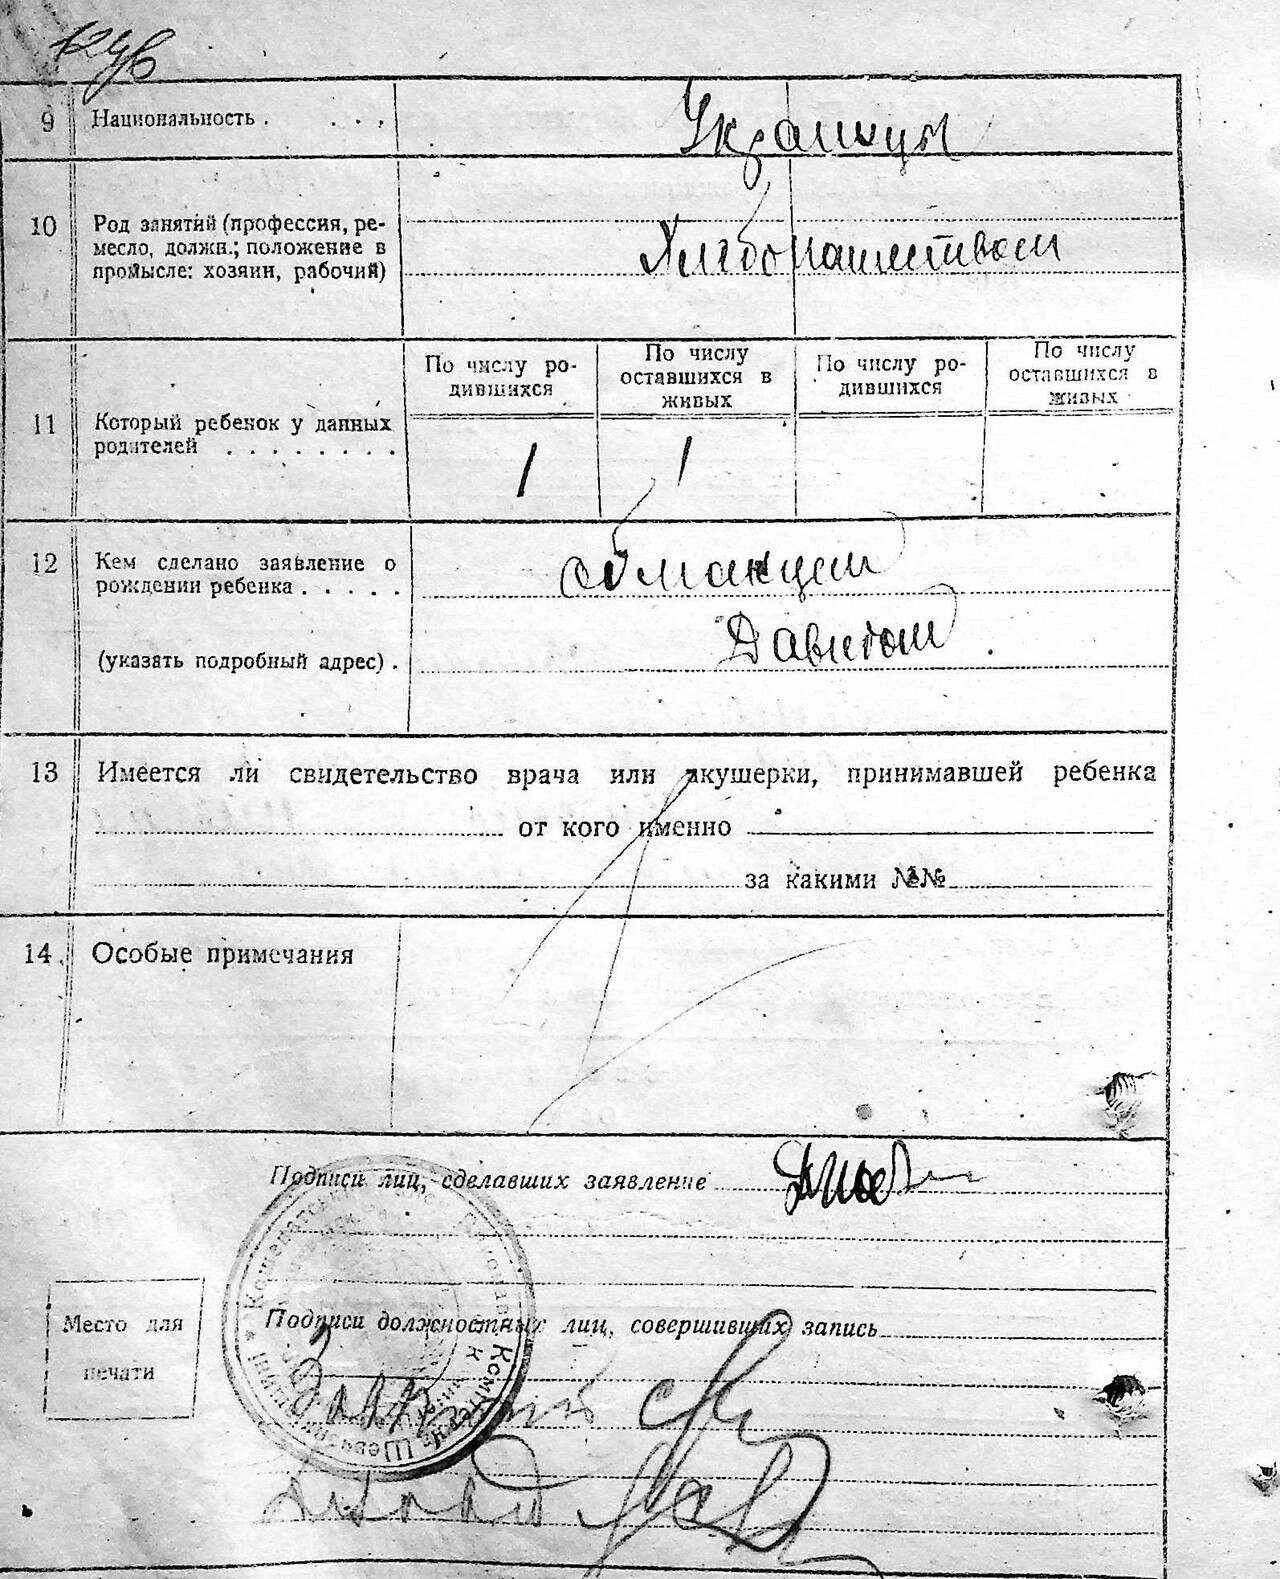 9 Национальность . . . ,
Украинцы
10 Род занятий (профессия, ре-
месло, должн.; положение в
промысле: хозяин, рабочий)
Хлебопашеством
11 Который ребенок у данных
родителей . . . . . . . .
По числу ро-
дившихся
По числу
оставшихся в
живых
По числу ро-
дившихся
По числу
оставшихся в
живых
1 1
12 Кем сделано заявление о
рождении ребенка . . . . .
(указать подробный адрес) .
Давидом
13 Имеется ли свидетельство врача или акушерки, принимавшей ребенка
от кого именно
за какими №№
14. Особые примечания
Подписи лиц, сделавших заявление
Подписи должностных лиц, совершивших запись
Место для
печати